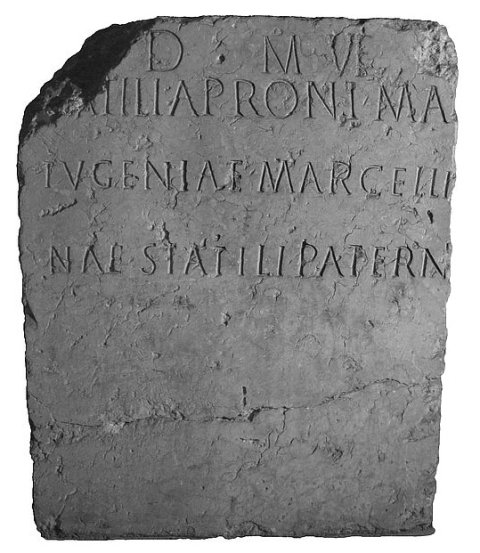 D M
ATILI·APRONI·MA
TVGENIAE MARCELLI
NAE STATILI PATERN